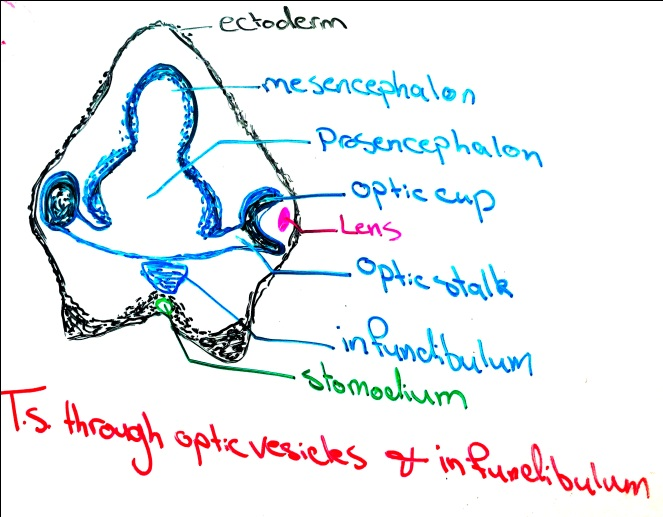 ectoderm
mesencephalon
Prosencephalon
optic cup
Lens
Optic stalk
infundibulum
stomodium
T.s. through optic vesicles & infundibulum